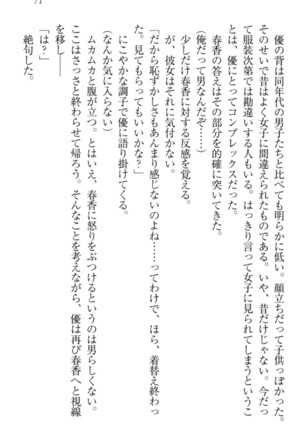 71
優の背は同年代の男子たちと比べても明らかに低い。顔立ちだって子供っぽかった。
そのせいで昔はよく女子に間違えられたものである。いや、昔だけじゃない。今だっ
て服装次第では勘違いする人もいる。はっきり言って女子に見られてしまうというこ
とは、優にとってコンプレックスだった。
春香の答えはその部分を的確に突いてきた。
（俺だって男なんだぞ……）
少しだけ春香に対する反感を覚える。
が、彼女はそれに気付かない。
「だから恥ずかしさもあんまり感じないのよね……ってわけで、ほら、着替え終わっ
た。見てもらってもいいかな？」
にこやかな調子で優に語り掛けてくる。
（なんか気に入らない）
ムカムカと腹が立つ。とはいえ、春香に怒りをぶつけるというのは男らしくない。
ここはさっさと終わらせて帰ろう。そんなことを考えながら、優は再び春香へと視線
を移し――
「は？」
絶句した。